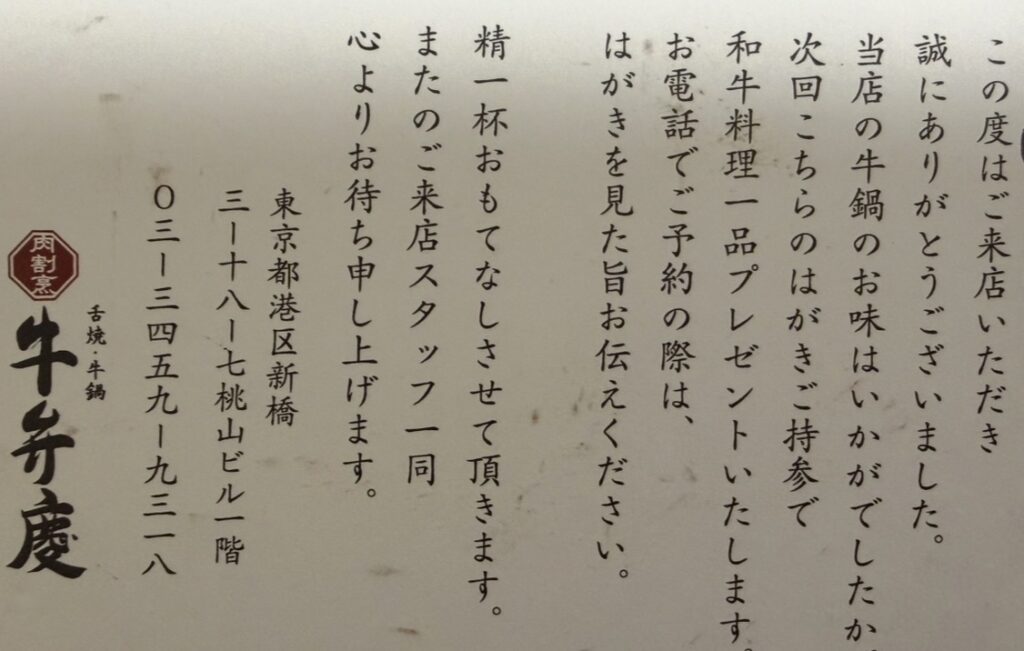 この度はご来店いただき
誠にありがとうございました。
当店の牛鍋のお味はいかがでしたか。
次回こちらのはがきご持参で
和牛料理一品プレゼントいたします。
お電話でご予約の際は、
はがきを見た旨お伝えください。
精一杯おもてなしさせて頂きます。
またのご来店スタッフ一同
心よりお待ち申し上げます。
東京都港区新橋
三ー十八ー七桃山ビル一階
〇三ー三四五九ー九三一八
舌焼・牛鍋
肉割烹
牛弁慶